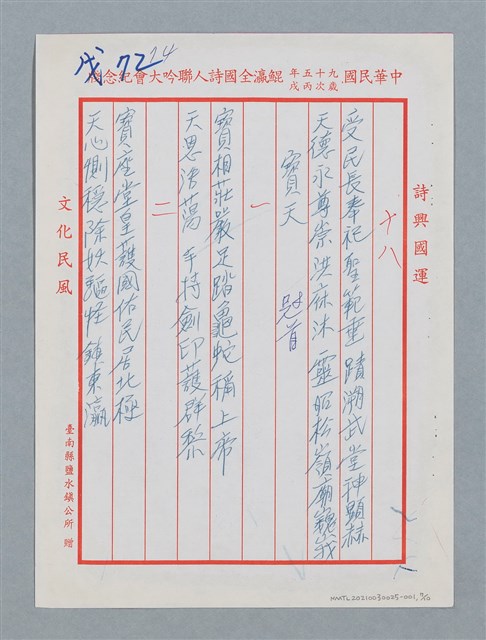 戊 72 24
中華民國九十五年歲次丙戌鯤瀛全國詩人聯吟大會紀念
詩興國運
十八
受民長奉祀聖範重蹟溯武堂神顯赫
天德永尊崇洪庥沐靈昭松嶺廟巍峩
寶天 冠首
一
寶相莊嚴足踏龜蛇稱上帝
天恩浩蕩手持劍印護群黎
二
寶座堂皇護國佑民居北極
天心惻穩除妖驅怪鎮東瀛
文化民風
臺南縣鹽水鎮公所 贈
NMTL20210030025-001